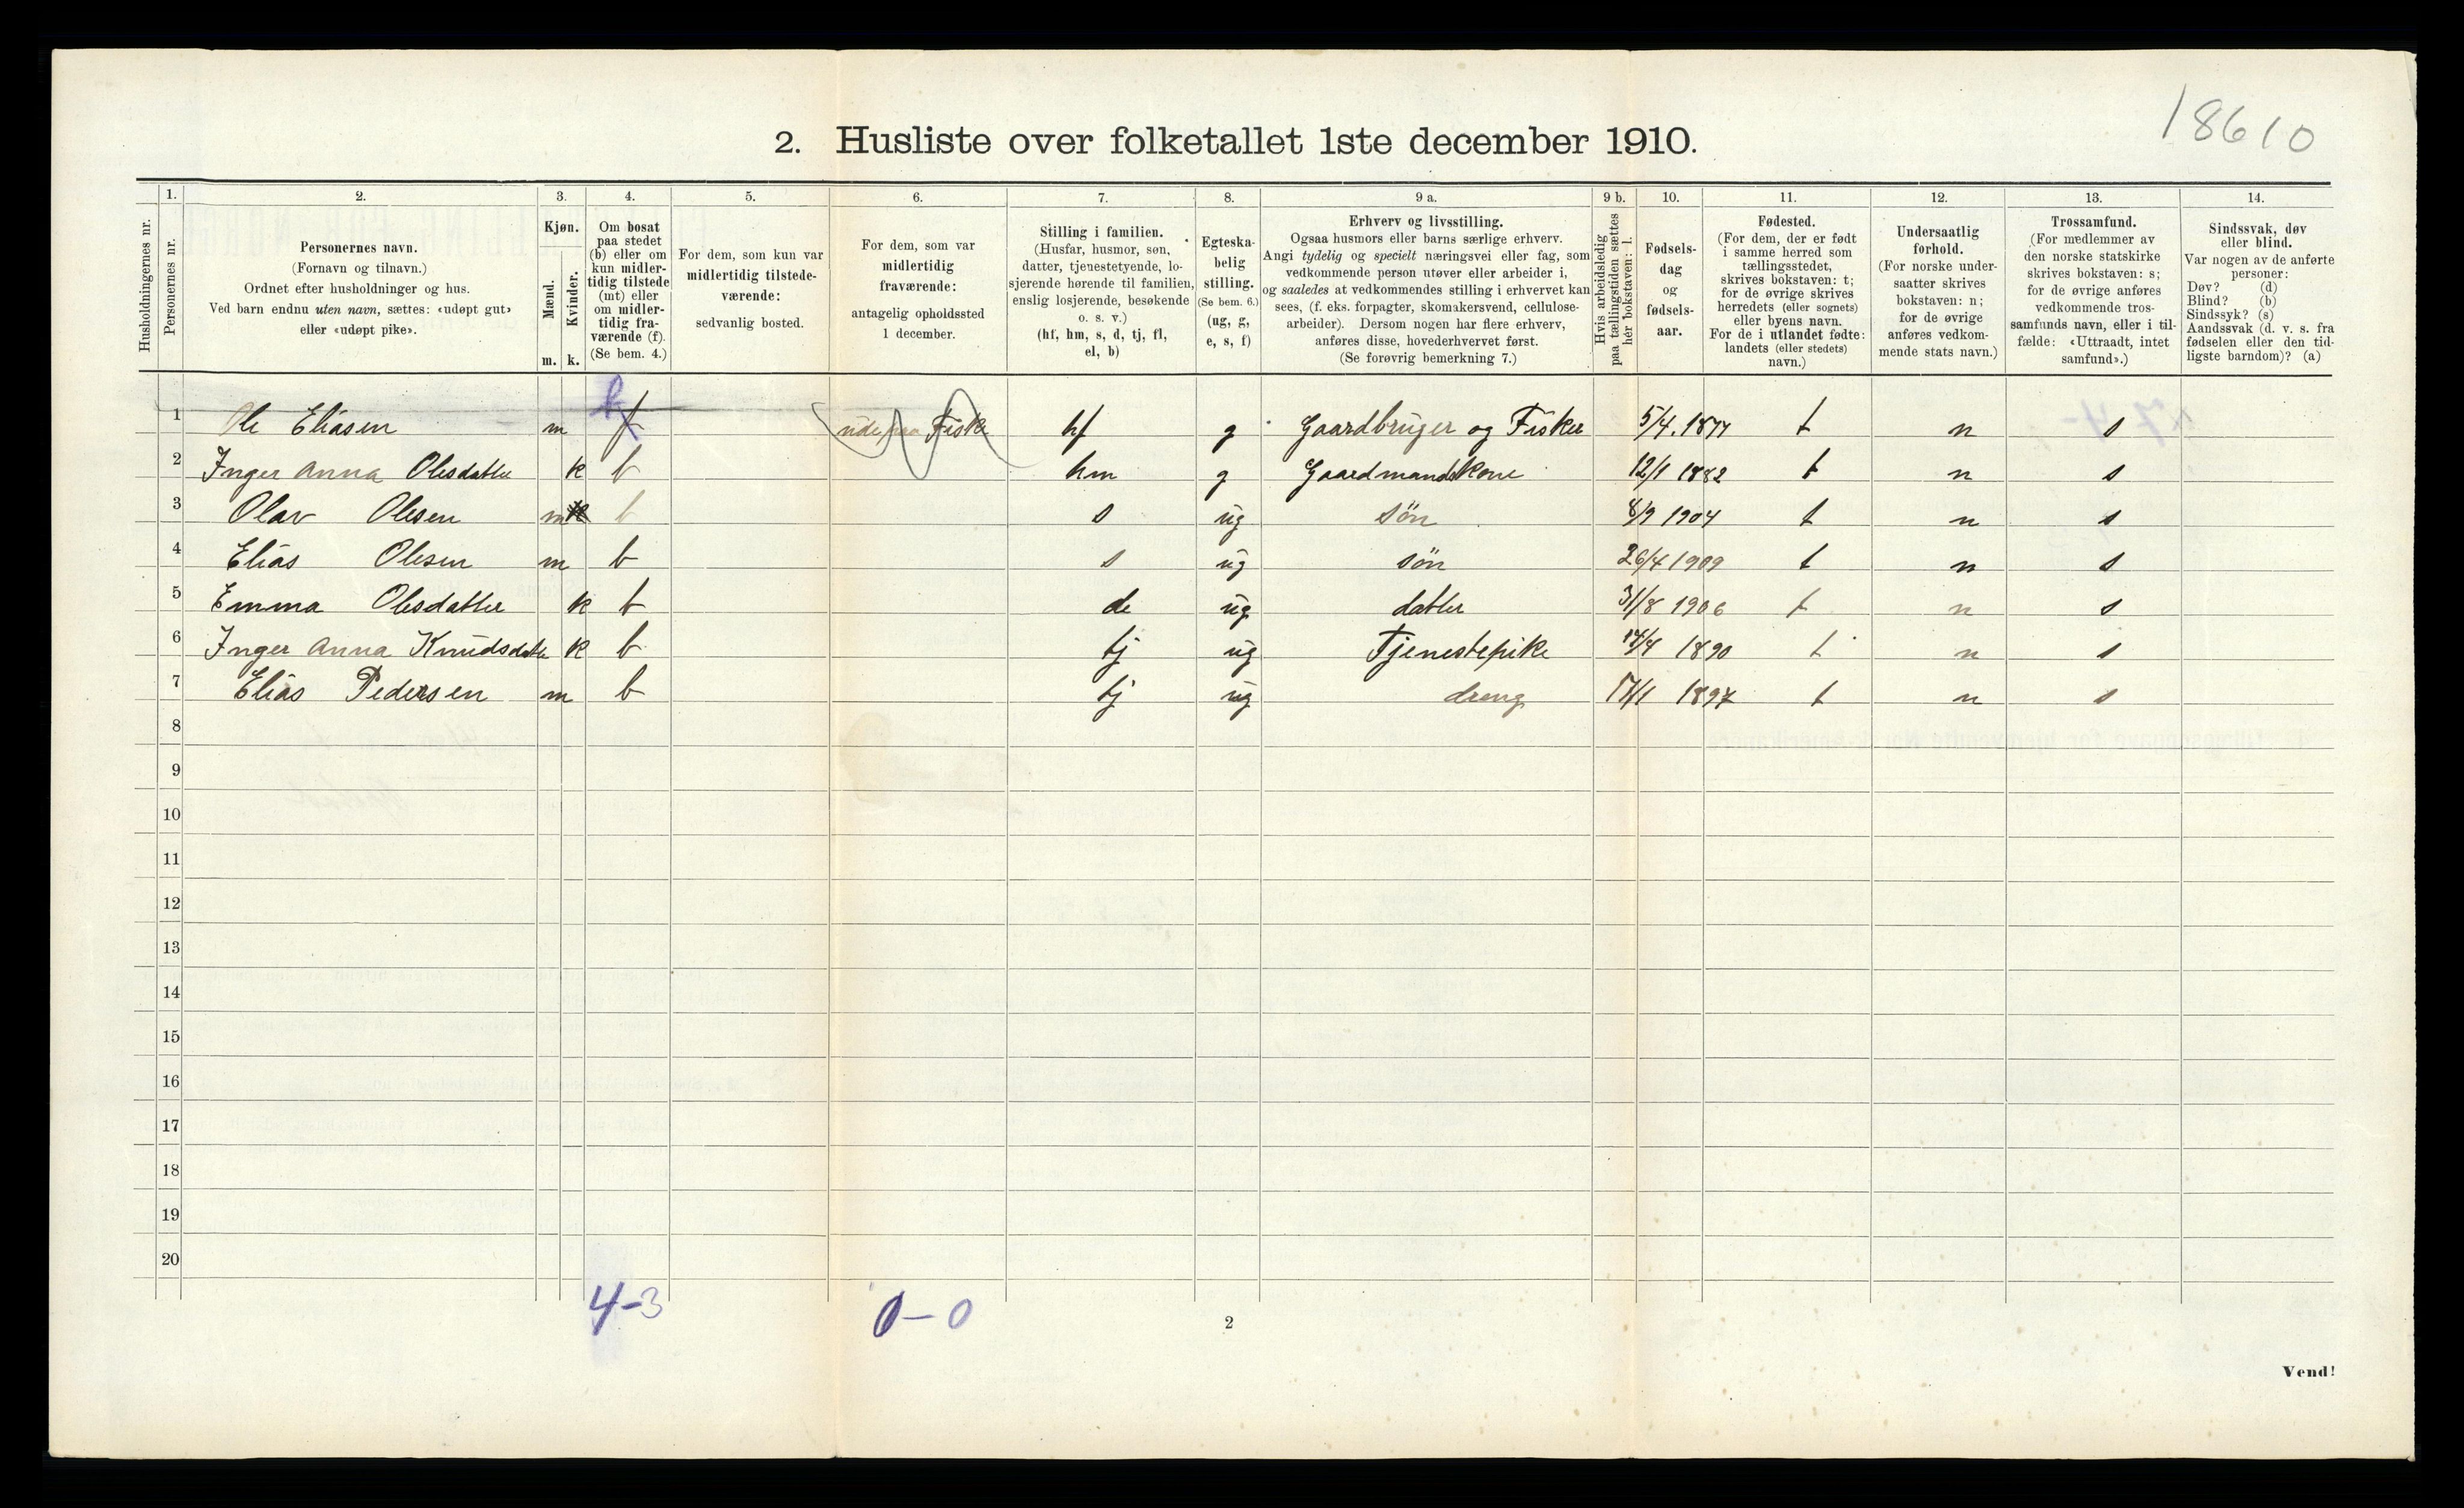 18610
2. Husliste over folketallet 1ste december 1910.
1. 2. 3. 4. 5. 6. 7. 8. 9 a. 9 b. 10. 11. 12. 13. 14.
Husholdningernes nr.
Personernes nr.
Personernes navn.
(Fornavn og tilnavn.)
Ordnet efter husholdninger og hus.
Ved barn endnu uten navn, sættes: «udøpt gut»
eller «udøpt pike».
Kjøn.
Mænd.
Kvinder.
m. k.
Om bosat
paa stedet
(b) eller om
kun midler-
tidig tilstede
(mt) eller
om midler-
tidig fra-
værende (f).
(Se bem. 4.)
For dem, som kun var
midlertidig tilstede-
værende:
sedvanlig bosted.
For dem, som var
midlertidig
fraværende:
antagelig opholdssted
1 december.
Stilling i familien.
(Husfar, husmor, søn,
datter, tjenestetyende, lo-
sjerende hørende til familien,
enslig losjerende, besøkende
o. s. v.)
(hf, hm, s, d, tj, fl,
el, b)
Egteska-
belig
stilling.
(Se bem. 6.)
(ug, g,
e, s, f)
Erhverv og livsstilling.
Ogsaa husmors eller barns særlige erhverv.
Angi tydelig og specielt næringsvei eller fag, som
vedkommende person utøver eller arbeider i,
og saaledes at vedkommendes stilling i erhvervet kan
sees, (f. eks. forpagter, skomakersvend, cellulose-
arbeider). Dersom nogen har flere erhverv,
anføres disse, hovederhvervet først.
(Se forøvrig bemerkning 7.)
Hvis arbeidsledig
paa tællingstiden sættes
her bokstaven: l.
Fødsels-
dag
og
fødsels-
aar.
Fødested.
(For dem, der er født
i samme herred som
tællingsstedet,
skrives bokstaven: t;
for de øvrige skrives
herredets (eller sognets)
eller byens navn.
For de i utlandet fødte:
landets (eller stedets)
navn.)
Undersaatlig
forhold.
(For norske under-
saatter skrives
bokstaven: n;
for de øvrige
anføres vedkom-
mende stats navn.)
Trossamfund.
(For medlemmer av
den norske statskirke
skrives bokstaven: s;
for de øvrige anføres
vedkommende tros-
samfunds navn, eller i til-
fælde: «Uttraadt, intet
samfund».)
Sindssvak, døv
eller blind.
Var nogen av de anførte
personer:
Døv? (d)
Blind? (b)
Sindssyk? (s)
Aandssvak (d. v. s. fra
fødselen eller den tid-
ligste barndom)? (a)
1 Ole Eliasen m b f ude paa Fiske hf g Gaardbruger og Fisker 5/4. 1877 t n s
2 Inger Anna Olesdatter k b hm g Gaardmandskone 12/1 1882 t n s
3 Olav Olesen m k b s ug sön 8/9 1904 t n s
4 Elias Olesen m b s ug sön 26/4 1909 t n s
5 Emma Olesdatter k b de ug datter 31/8 1906 t n s
6 Inger Anna Knudsdatte k b tj ug Tjenestepike 14/4 1890 t n s
7 Elias Pedersen m b tj ug dreng 17/1 1897 t n s
8
9
10
11
12
13
14
15
16
17
18
19
20
4-3 0-0
2
Vend!